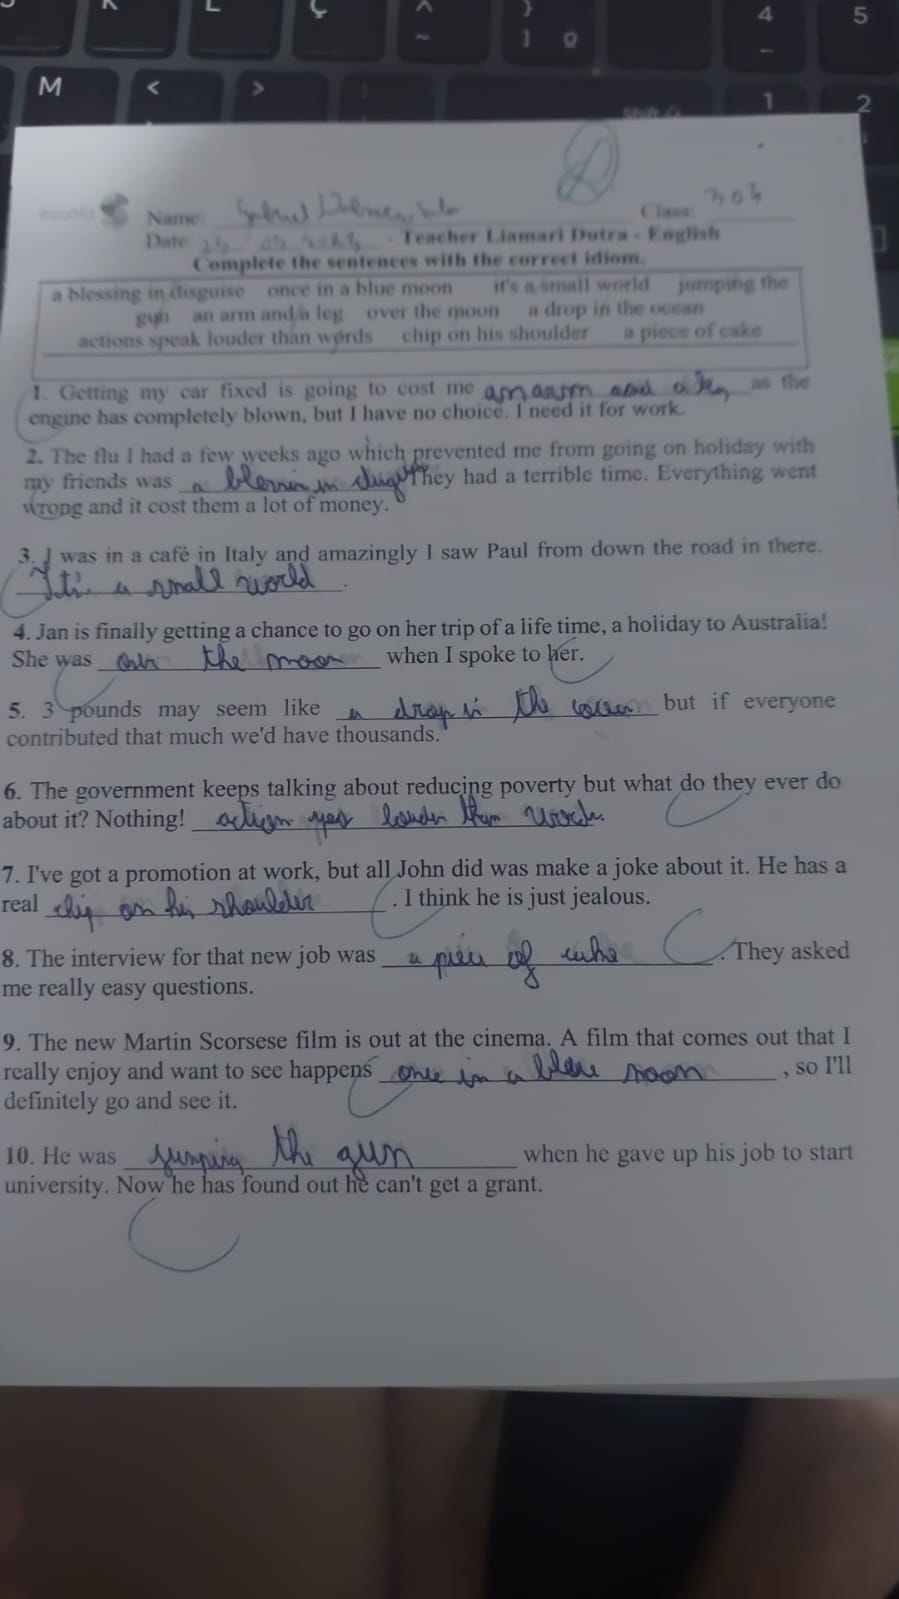 K L Ç ^ ~ } ] º 4 5
M < > 1 2
escola Name: Class: 303
Date: - Teacher Liamari Dutra - English
Complete the sentences with the correct idiom.
a blessing in disguise once in a blue moon it's a small world jumping the
gun an arm and a leg over the moon a drop in the ocean
actions speak louder than words chip on his shoulder a piece of cake
1. Getting my car fixed is going to cost me an arm and a leg as the
engine has completely blown, but I have no choice. I need it for work.
2. The flu I had a few weeks ago which prevented me from going on holiday with
my friends was a in They had a terrible time. Everything went
wrong and it cost them a lot of money.
3. I was in a café in Italy and amazingly I saw Paul from down the road in there.
It's a small world.
4. Jan is finally getting a chance to go on her trip of a life time, a holiday to Australia!
She was over the moon when I spoke to her.
5. 3 pounds may seem like a drop in the ocean but if everyone
contributed that much we'd have thousands.
6. The government keeps talking about reducing poverty but what do they ever do
about it? Nothing! action louder than words.
7. I've got a promotion at work, but all John did was make a joke about it. He has a
real chip on his shoulder . I think he is just jealous.
8. The interview for that new job was a piece of cake . They asked
me really easy questions.
9. The new Martin Scorsese film is out at the cinema. A film that comes out that I
really enjoy and want to see happens once in a blue moon , so I'll
definitely go and see it.
10. He was jumping the gun when he gave up his job to start
university. Now he has found out he can't get a grant.